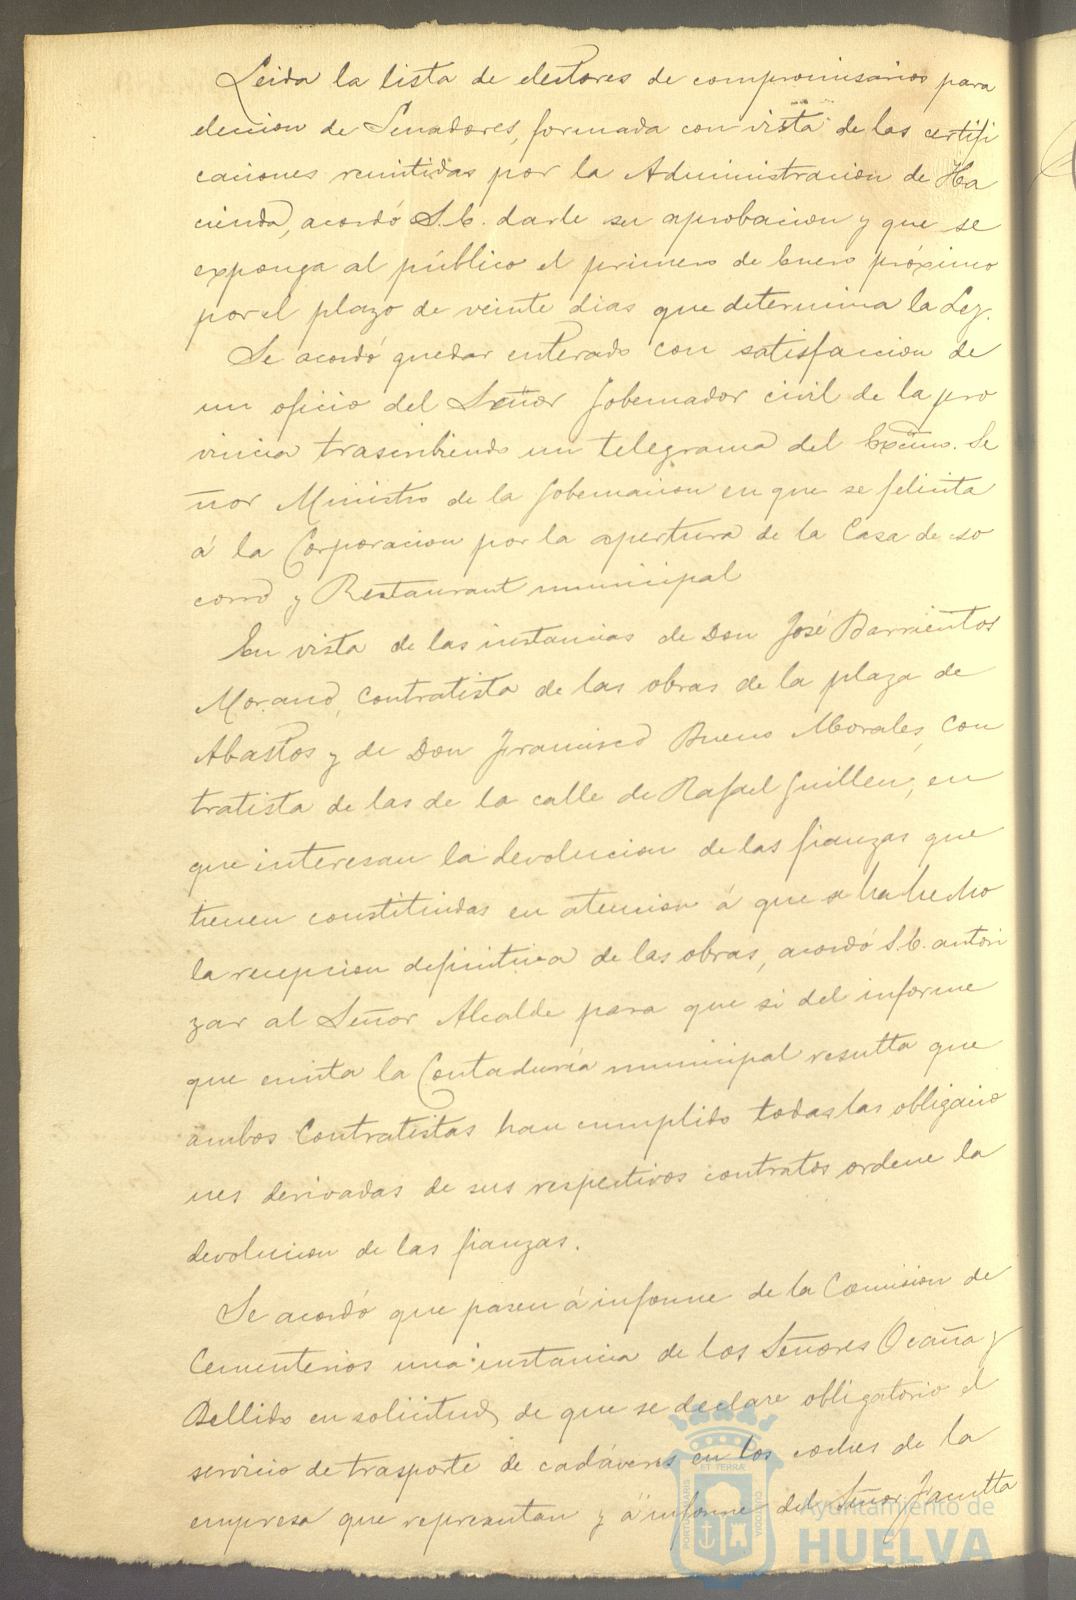 Leida la lista de electores de compromisarios para
eleccion de Senadores, formada con vista de las certifi
caciones remitidas por la Administracion de Ha
cienda, acordó S.E. darle su aprobacion y que se
exponga al público el primero de Enero próximo
por el plazo de veinte dias que determina la Ley.
Se acordó quedar enterado con satisfaccion de
un oficio del Señor Gobernador civil de la pro
vincia trascribiendo un telegrama del Excmo. Se
ñor Ministro de la Gobernacion en que se felicita
á la Corporacion por la apertura de la Casa de so
corro y Restaurant municipal
En vista de las instancias de Don José Barrientos
Morano, contratista de las obras de la plaza de
Abastos y de Don Francisco Bueno Morales, con
tratista de las de la calle de Rafael Guillen, en
que interesan la devolucion de las fianzas que
tienen constituidas en atencion á que se ha hecho
la recepcion definitiva de las obras, acordó S.E. autori
zar al Señor Alcalde para que si del informe
que emita la Contaduría municipal resulta que
ambos Contratistas han cumplido todas las obligacio
nes derivadas de sus respectivos contratos ordene la
devolucion de las fianzas.
Se acordó que pasen á informe de la Comision de
Cementerios una instancia de los Señores Ocaña y
Bellido en solicitud de que se declare obligatorio el
servicio de trasporte de cadáveres en los coches de la
empresa que representan y á informe del Señor
Ayuntamiento de
HUELVA